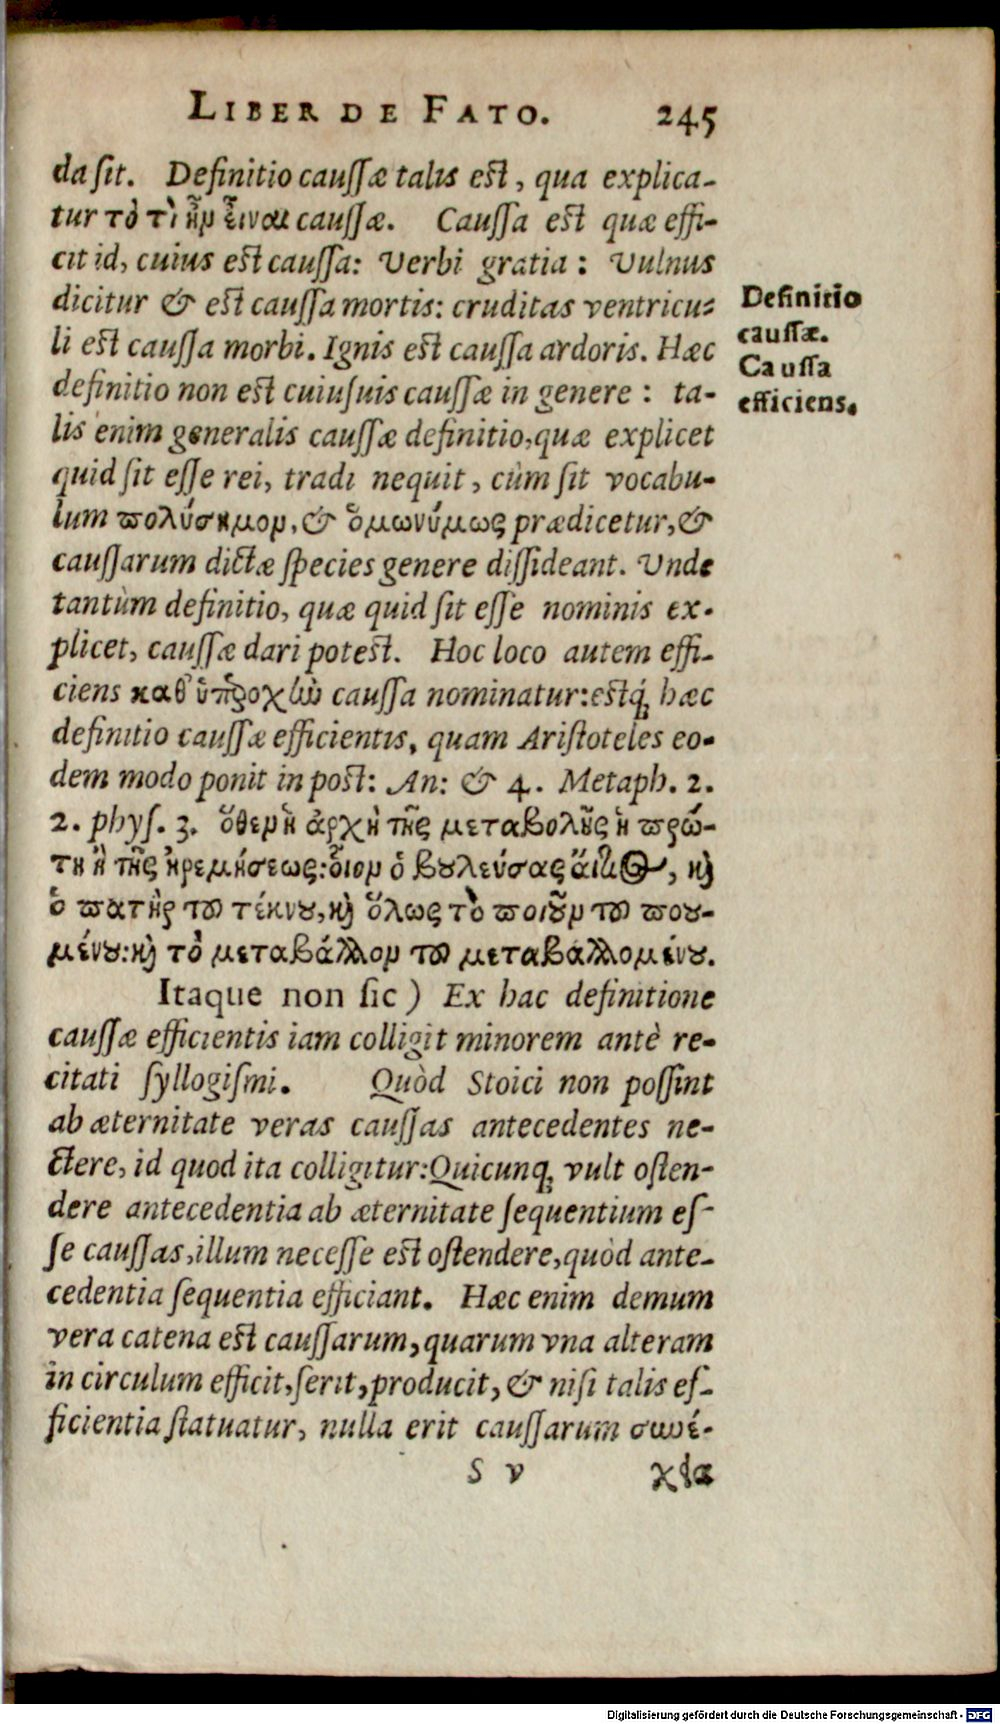 LIBER DE FATO. 245
da ſit. Definitio cauſſæ talis est, qua explica-
tur τὸ τὶ ἦν εἶναι cauſſæ. Cauſſa est quæ effi-
cit id, cuius est cauſſa: Verbi gratia: Vulnus
dicitur & est cauſſa mortis: cruditas ventricu-
li est cauſſa morbi. Ignis est cauſſa ardoris. Hæc
definitio non est cuiuſuis cauſſæ in genere: ta-
lis enim generalis cauſſæ definitio, quæ explicet
quid ſit eſſe rei, tradi nequit, cùm ſit vocabu-
lum πολύσημον, & ὁμωνύμως prædicetur, &
cauſſarum dictæ ſpecies genere diſſideant. Unde
tantùm definitio, quæ quid ſit eſſe nominis ex-
plicet, cauſſæ dari potest. Hoc loco autem effi-
ciens καθ' ὑπεροχὴν cauſſa nominatur: estq; hæc
definitio cauſſæ efficientis, quam Ariſtoteles eo-
dem modo ponit in post: An: & 4. Metaph. 2.
2. phyſ. 3. ὅθεν ἡ ἀρχὴ τῆς μεταβολῆς ἡ πρώ-
τη ἢ τῆς ἠρεμήσεως: οἷον ὁ βουλεύσας αἴτιος, καὶ
ὁ πατὴρ τοῦ τέκνου, καὶ ὅλως τὸ ποιοῦν τοῦ ποου-
μένου: καὶ τὸ μεταβάλλον τοῦ μεταβαλλομένου.
Itaque non ſic) Ex hac definitione
cauſſæ efficientis iam colligit minorem antè re-
citati ſyllogiſmi. Quòd Stoici non poſſint
ab æternitate veras cauſſas antecedentes ne-
ctere, id quod ita colligitur: Quicunq; vult oſten-
dere antecedentia ab æternitate ſequentium eſ-
ſe cauſſas, illum neceſſe est oſtendere, quòd ante-
cedentia ſequentia efficiant. Hæc enim demum
vera catena est cauſſarum, quarum vna alteram
in circulum efficit, ſerit, producit, & niſi talis ef-
ficientia ſtatuatur, nulla erit cauſſarum συνέ-
S v χεια
Definitio
cauſſæ.
Cauſſa
efficiens.
Digitalisierung gefördert durch die Deutsche Forschungsgemeinschaft - DFG